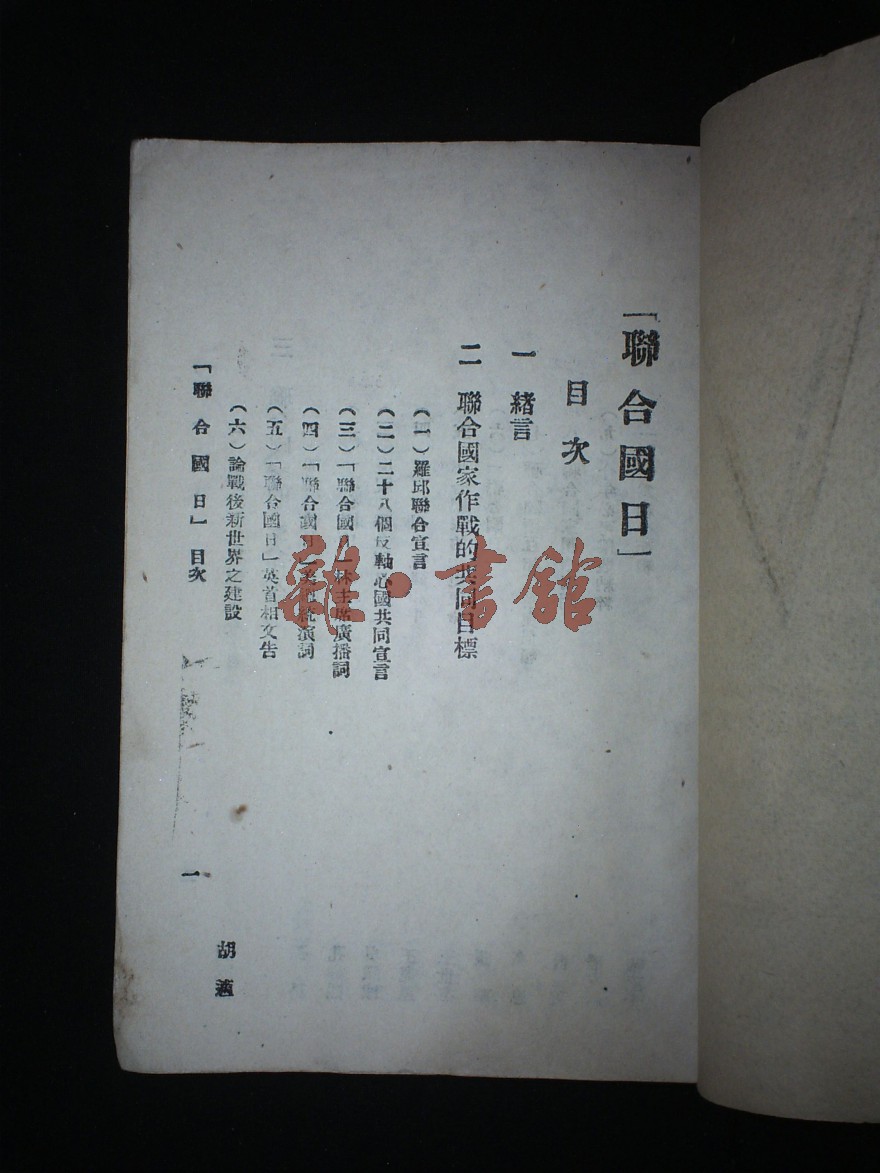 「聯合國日」
目次
一 緒言
二 聯合國家作戰的共同目標
（一）羅邱聯合宣言
（二）二十八個反軸心國共同宣言
（三）「聯合國日」林主席廣播詞
（四）「聯合國日」美總統演詞
（五）「聯合國日」英首相文告
（六）論戰後新世界之建設 胡適
「聯合國日」目次 一
雜·書館